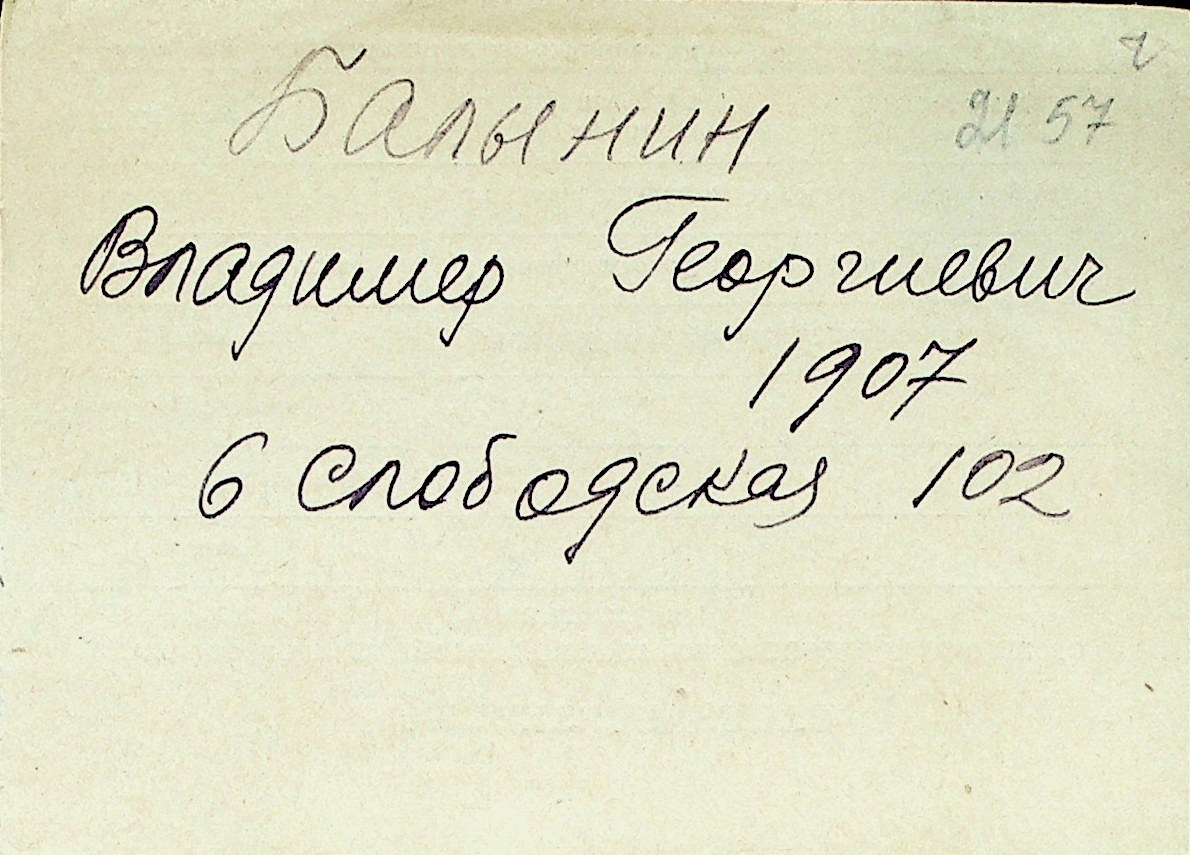 Балынин 2157
Владимир Георгиевич
1907
6 Слободская 102